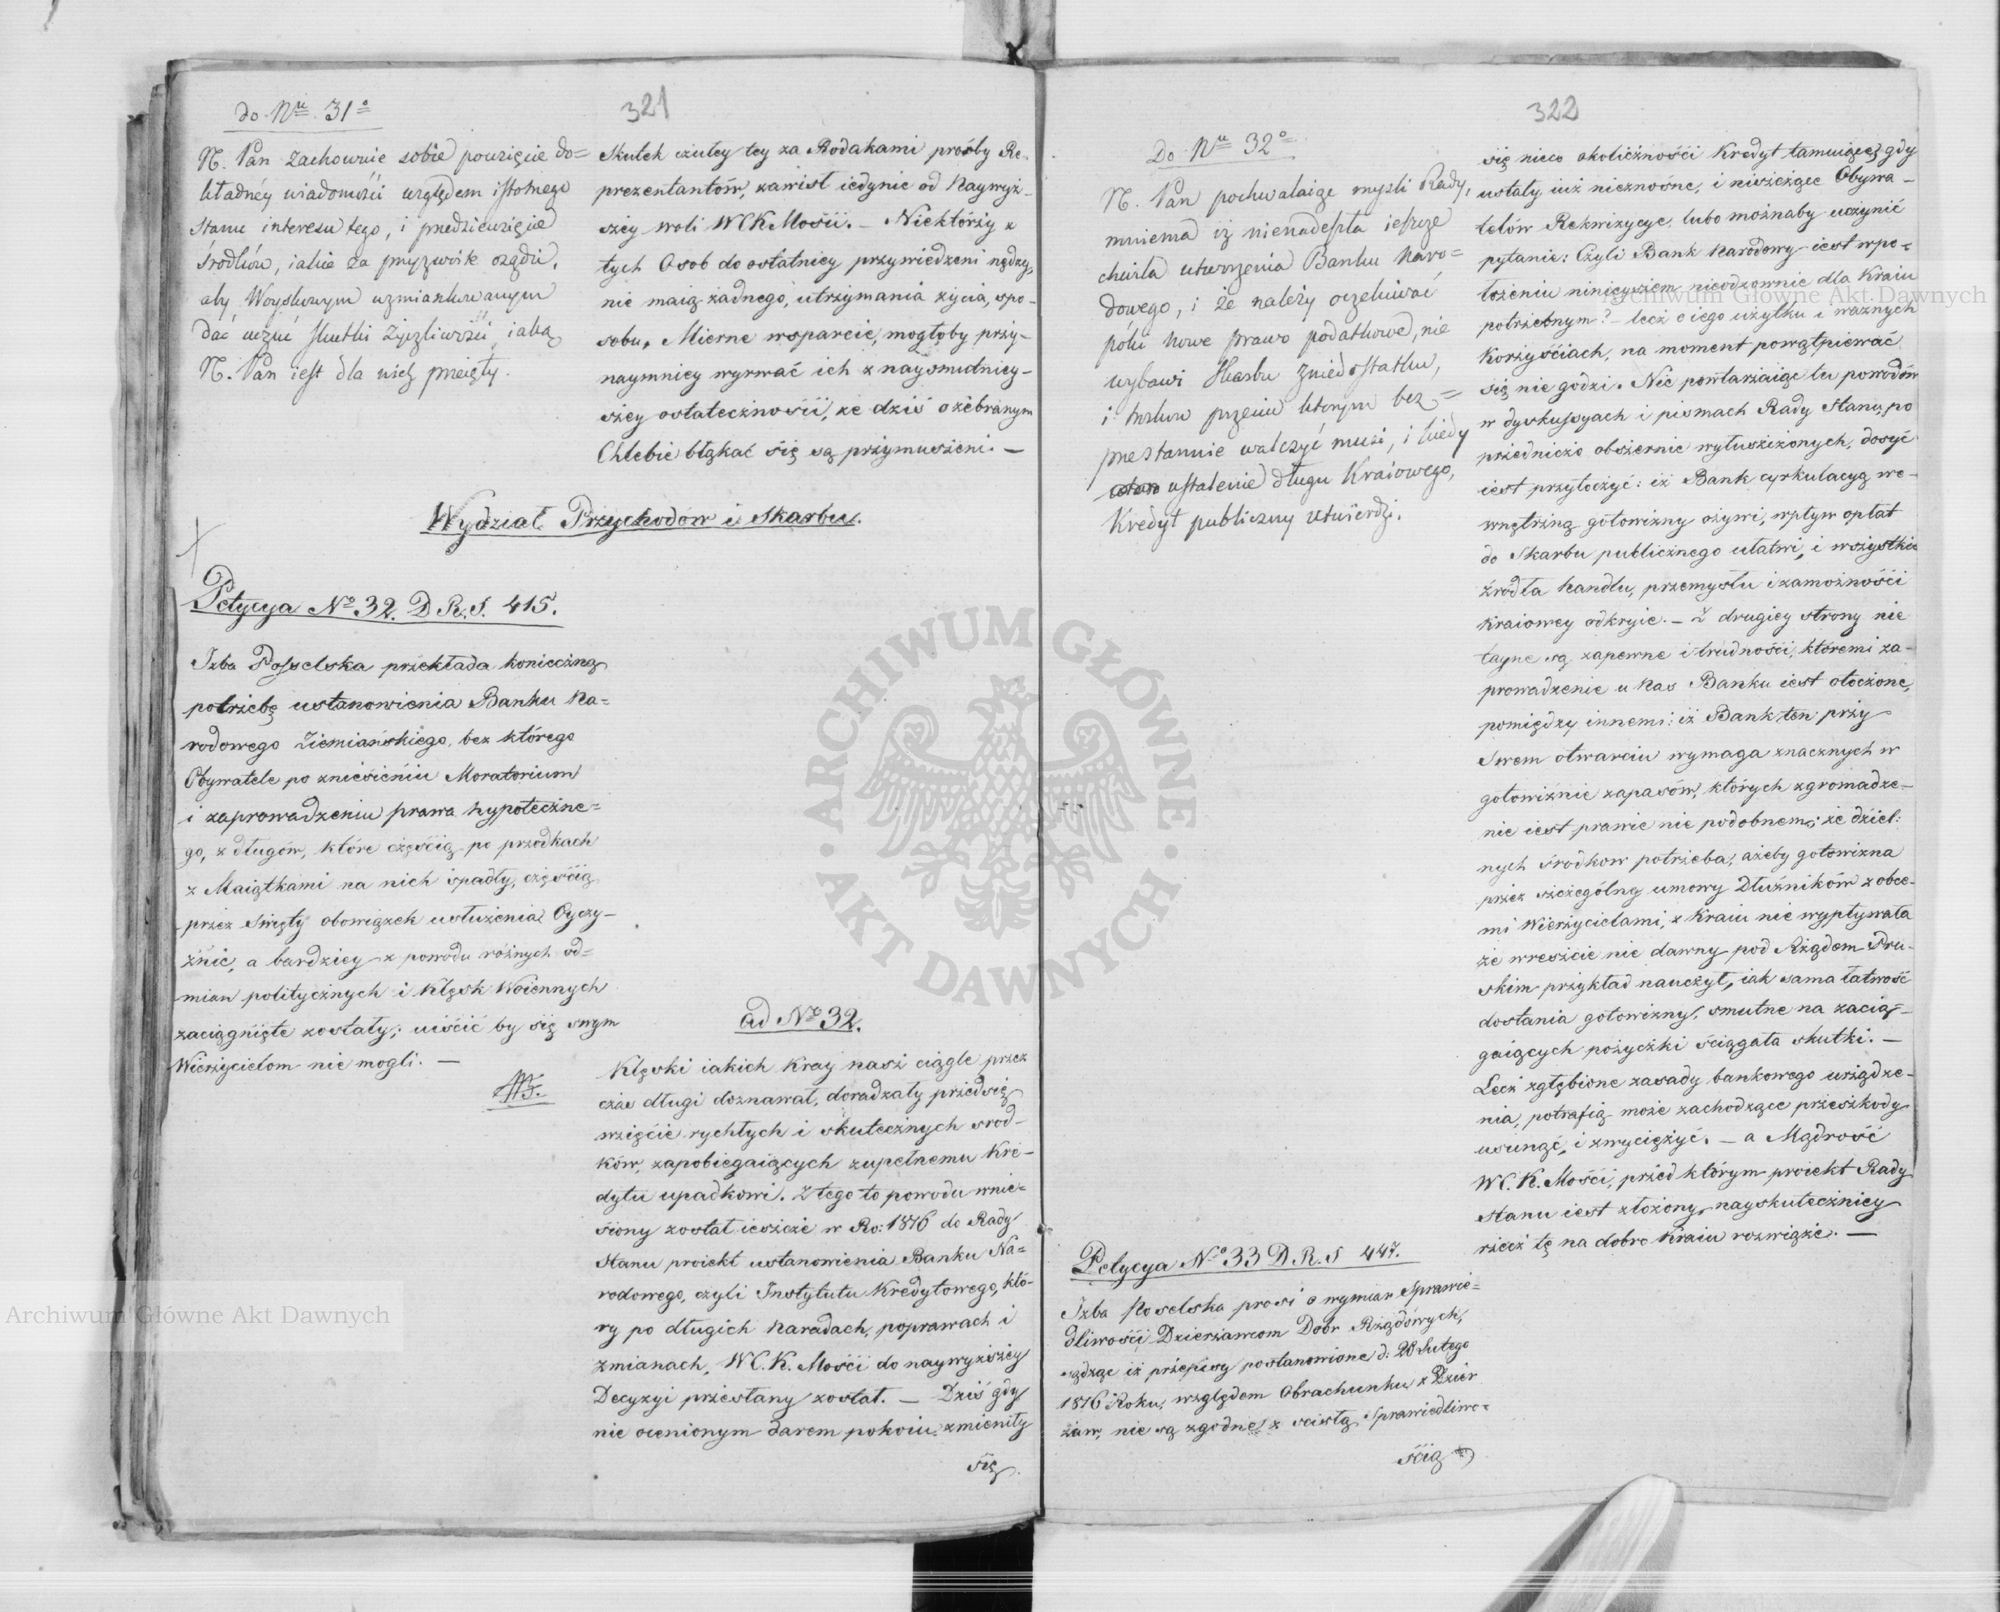 321
do Nru 31o
N. Pan zachowuie sobie powzięcie do=
kładnéy wiadomości względem istotnego
stanu interesu tego, i przedsięwzięcie
środków, iakie za przyzwoite osądzi,
aby Woyskowym wzmiankowanym
dać uczuć skutki życzliwości, iaką
N. Pan iest dla nich przeięty.
skutek czułey tey za Rodakami prośby Re-
prezentantów, zawisł iedynie od Naywyż-
szey woli W.C.K.Mości. — Niektórzy z
tych Osob do ostatniey przywiedzeni nędzy,
nie maią żadnego, utrzymania życia, spo-
sobu. Mierne wsparcie, mogłoby przy-
naymniey wyrwać ich z naysmutniey-
szey ostateczności, że dziś o żebranym
Chlebie błąkać się są przymuszeni. —
Wydział Przychodów i Skarbu.
Petycya No 32. D.R.S. 415.
Izba Poselska przekłada konieczną
potrzebę ustanowienia Banku Na=
rodowego Ziemiańskiego, bez którego
Obywatele po zniesieniu Moratorium
i zaprowadzeniu prawa hypoteczne=
go, z długów, które częścią po przodkach
z Maiątkami na nich spadły, częścią
przez święty obowiązek usłużenia Oyczy-
źnie, a bardziey z powodu różnych od=
mian politycznych i klęsk Woiennych
zaciągnięte zostały; uiścić by się swym
Wierzycielom nie mogli. —
ad No 32.
Klęski iakich Kray nasz ciągle przez
czas długi doznawał, doradzały przedsię
wzięcie rychłych i skutecznych srod-
ków, zapobiegaiących zupełnemu Kre-
dytu upadkowi. Z tego to powodu wnie=
siony został ieszcze w Ro: 1816 do Rady
Stanu proiekt ustanowienia Banku Na=
rodowego, czyli Instytutu Kredytowego, któ-
ry po długich naradach, poprawach i
zmianach, W.C.K. Mości do naywyższey
Decyzyi przesłany został. — Dziś gdy
nie ocenionym darem pokoiu, zmieniły
się
322
Do Nru 32o
N. Pan pochwalaiąc myśli Rady,
mniema iż nienadeszła ieszcze
chwila utworzenia Banku Naro=
dowego, i że należy oczekiwać
póki nowe prawo podatkowe, nie
wybawi Skarbu z niedostatku,
i trudu przeciw którym bez=
przestannie walczyć musi, i kiedy
ustalenie długu Kraiowego,
Kredyt publiczny utwierdzi.
się nieco okoliczności Kredyt tamuiące, gdy
ustały już nieznośne, i niszczące Obywa-
telów Rekwizycye, lubo możnaby uczynić
pytanie: Czyli Bank Narodowy iest w po=
łożeniu ninieyszem nieodzownie dla Kraiu
potrzebnym? — lecz o iego użytku i ważnych
Korzyściach, na moment powątpiewać
się nie godzi. Nie powtarzaiąc tu powodów
w dyskussyach i pismach Rady Stanu, po
przedniczo obszernie wyłuszczonych, dosyć
iest przytoczyć: iż Bank cyrkulacyą we-
wnętrzną gotowizny ożywi, wpływ opłat
do Skarbu publicznego ułatwi, i wszystkie
źródła handlu, przemysłu i zamożności
kraiowey odkryie. — Z drugiey strony nie
tayne są zapewne i trudności, któremi za-
prowadzenie u Nas Banku iest otoczone,
pomiędzy innemi: iż Bank ten przy
Swem otwarciu wymaga znacznych w
gotowiznie zapasów, których zgromadze-
nie iest prawie nie podobnem; że dziel:
nych srodkow potrzeba, ażeby gotowizna
przez szczególną umowy Dłużników z obce-
mi Wierzycielami, z Kraiu nie wypływała
że wreszcie nie dawny pod Rządem Pru-
skim przykład nauczył, iak sama łatwość
dostania gotowizny, smutne na zacią-
gaiących pożyczki ściągała skutki. —
Lecz zgłębione zasady bankowego urządze-
nia, potrafią może zachodzące przeszkody
usunąć, i zwyciężyć. — a Mądrość
W.C.K. Mości, przed którym proiekt Rady
Stanu iest złożony, nayskuteczniey
rzecz tę na dobro Kraiu rozwiąże. —
Petycya No 33 D.R.S 447.
Izba Poselska prosi o wymiar Sprawie=
dliwości Dzierżawcom Dobr Rządowych,
sądząc iż przepisy postanowione d: 20 Lutego
1816 Roku, względem Obrachunku z Dzier
żaw, nie są zgodne z scisłą Sprawiedliwo=
ścią
ARCHIWUM GŁÓWNE · AKT DAWNYCH ·
Archiwum Główne Akt Dawnych
Archiwum Główne Akt Dawnych